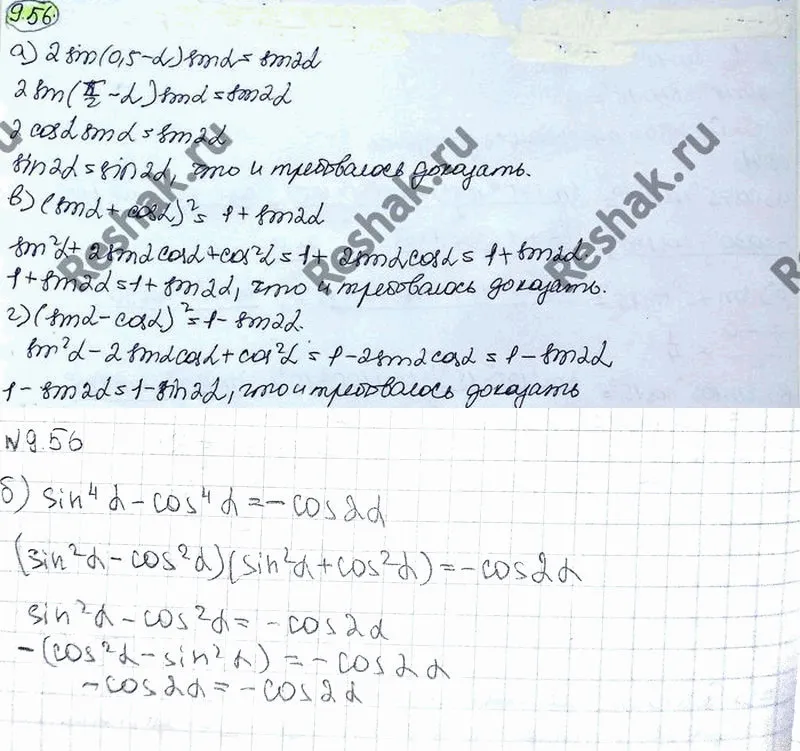 9.56.
а) 2 sin(0,5-α) sinα = sin2α
2 sin(π/2 - α) sinα = sin2α
2 cosα sinα = sin2α
sin2α = sin2α, что и требовалось доказать.
в) (sinα + cosα)² = 1 + sin2α
sin²α + 2sinα cosα + cos²α = 1 + 2sinα cosα = 1 + sin2α.
1 + sin2α = 1 + sin2α, что и требовалось доказать.
г) (sinα - cosα)² = 1 - sin2α.
sin²α - 2 sinα cosα + cos²α = 1 - 2sinα cosα = 1 - sin2α,
1 - sin2α = 1 - sin2α, что и требовалось доказать
N 9.56
б) sin⁴α - cos⁴α = - cos2α
(sin²α - cos²α)(sin²α + cos²α) = - cos2α
sin²α - cos²α = - cos2α
-(cos²α - sin²α) = - cos2α
- cos2α = - cos2α
Reshak.ru
Reshak.ru
Reshak.ru
Reshak.ru